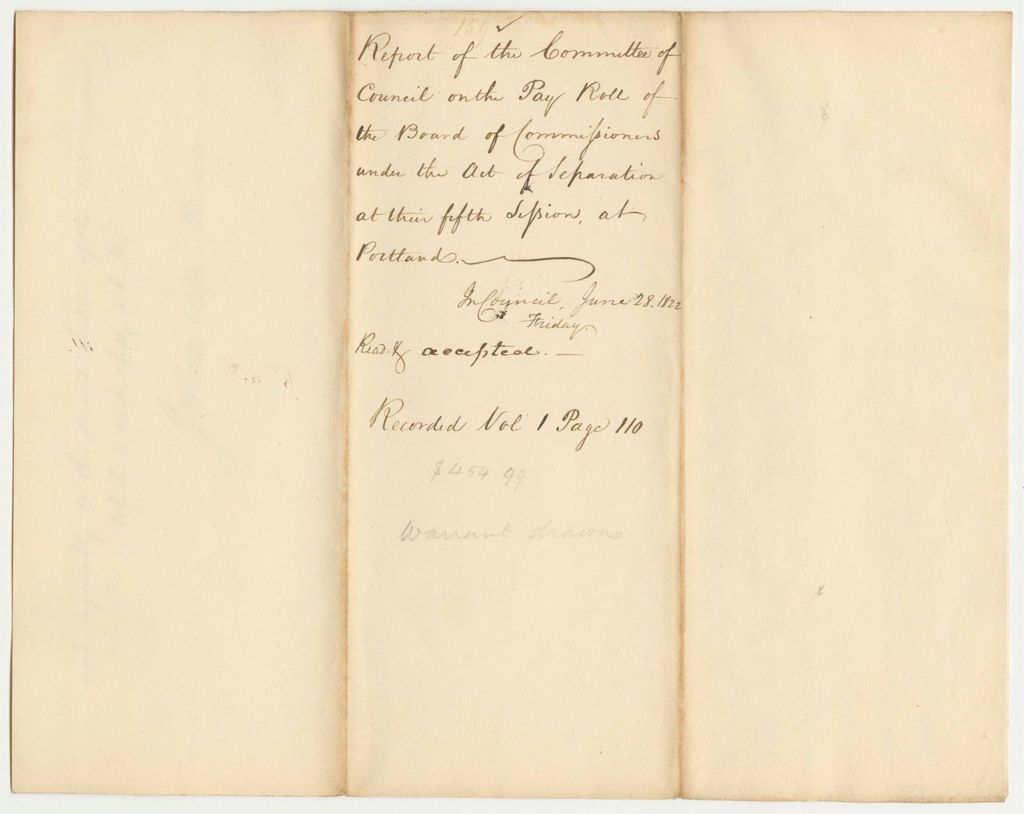 159 ✓
Report of the Committee of
Council on the Pay Roll of
the Board of Commissioners
under the Act of Separation
at their fifth Session, at
Portland.
In Council, June 28. 1822
Friday.
Read & accepted. —
Recorded Vol 1 Page 110
$454 99
Warrant drawn